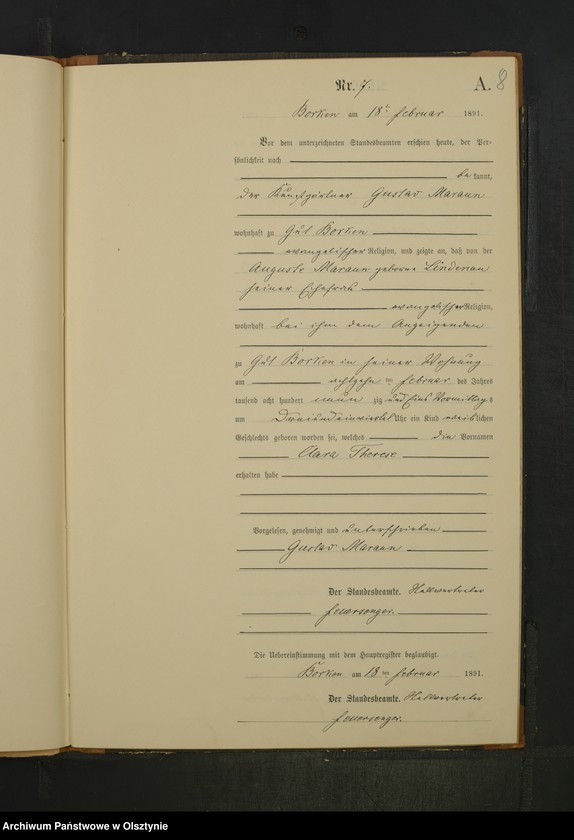 Nr. 7. A. 8
Borken am 18t Februar 1891.
Vor dem unterzeichneten Standesbeamten erschien heute, der Per-
sönlichkeit nach
be kannt,
der Kunstgärtner Gustav Marann
wohnhaft zu Gut Borken
evangelischer Religion, und zeigte an, daß von der
Auguste Marann geborne Lindenau
seiner Ehefrau
evangelischer Religion,
wohnhaft bei ihm dem Anzeigenden
zu Gut Borken in seiner Wohnung
am achtzehn ten Februar des Jahres
tausend acht hundert neun zig und Eins Vormittags
um Dreiundeinviertel Uhr ein Kind weiblichen
Geschlechts geboren worden sei, welches die Vornamen
Clara Therese
erhalten habe
Vorgelesen, genehmigt und unterschrieben
Gustav Marann
Der Standesbeamte.
Feuersenger.
Die Uebereinstimmung mit dem Hauptregister beglaubigt.
Borken am 18 ten Februar 1891.
Der Standesbeamte.
Feuersenger.
Archiwum Państwowe w Olsztynie